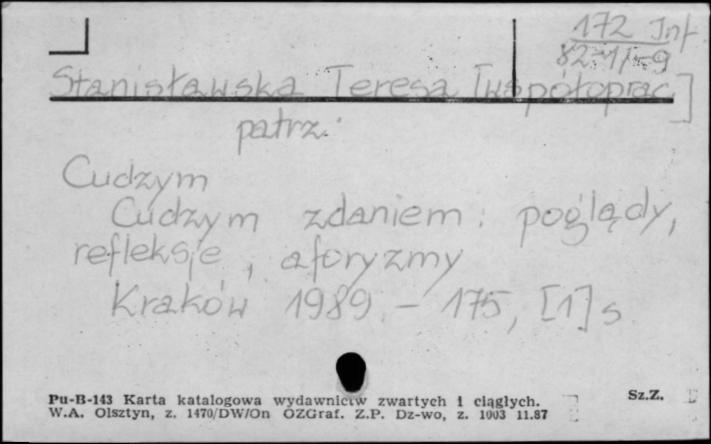 172 Inf
82-1/-9
Stanisławska Teresa [współoprac]
patrz:
Cudzym
Cudzym zdaniem : poglądy,
refleksje, aforyzmy
Kraków 1989. - 175, [1] s
Pu-B-143 Karta katalogowa wydawnictw zwartych i ciągłych. Sz.Z.
W.A. Olsztyn, z. 1470/DW/On OZGraf. Z.P. Dz-wo, z. 1003 11.87